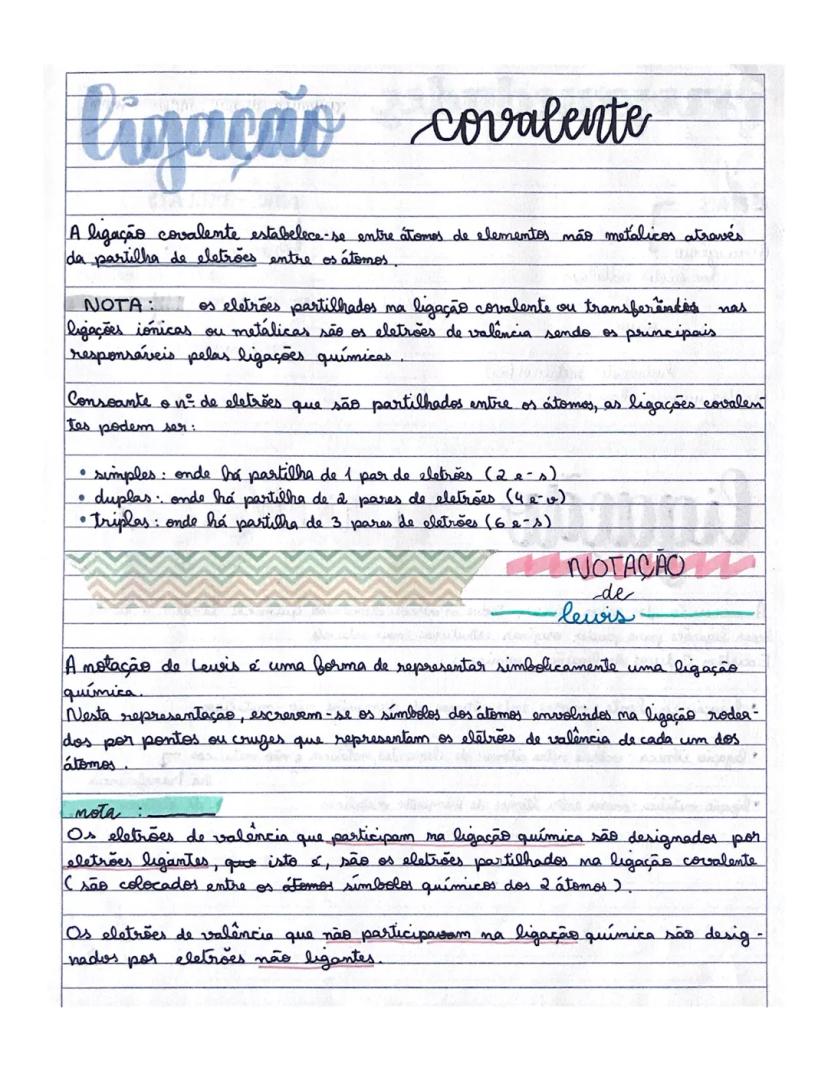 ligação covalente
A ligação covalente estabelece-se entre átomos de elementos não metálicos através
da partilha de eletrões entre os átomos.
NOTA: os eletrões partilhados na ligação covalente ou transferêntes nas
ligações iónicas ou metálicas são os eletrões de valência sendo os principais
responsáveis pelas ligações químicas.
Consoante o nº de eletrões que são partilhados entre os átomos, as ligações covalen
tes podem ser:
• simples: onde há partilha de 1 par de eletrões (2 e-s)
• duplas: onde há partilha de 2 pares de eletrões (4 e-s)
• triplas: onde há partilha de 3 pares de eletrões (6 e-s)
NOTAÇÃO
de
lewis
A notação de Lewis é uma forma de representar simbolicamente uma ligação
química.
Nesta representação, escrevem-se os símbolos dos átomos envolvidos na ligação rodea-
dos por pontos ou cruzes que representam os elétrões de valência de cada um dos
átomos.
nota:
Os eletrões de valência que participam na ligação química são designados por
eletrões ligantes, que isto é, são os eletrões partilhados na ligação covalente
(são colocados entre os átomos símbolos químicos dos 2 átomos).
Os eletrões de valência que não participam na ligação química são desig-
nados por eletrões não ligantes.